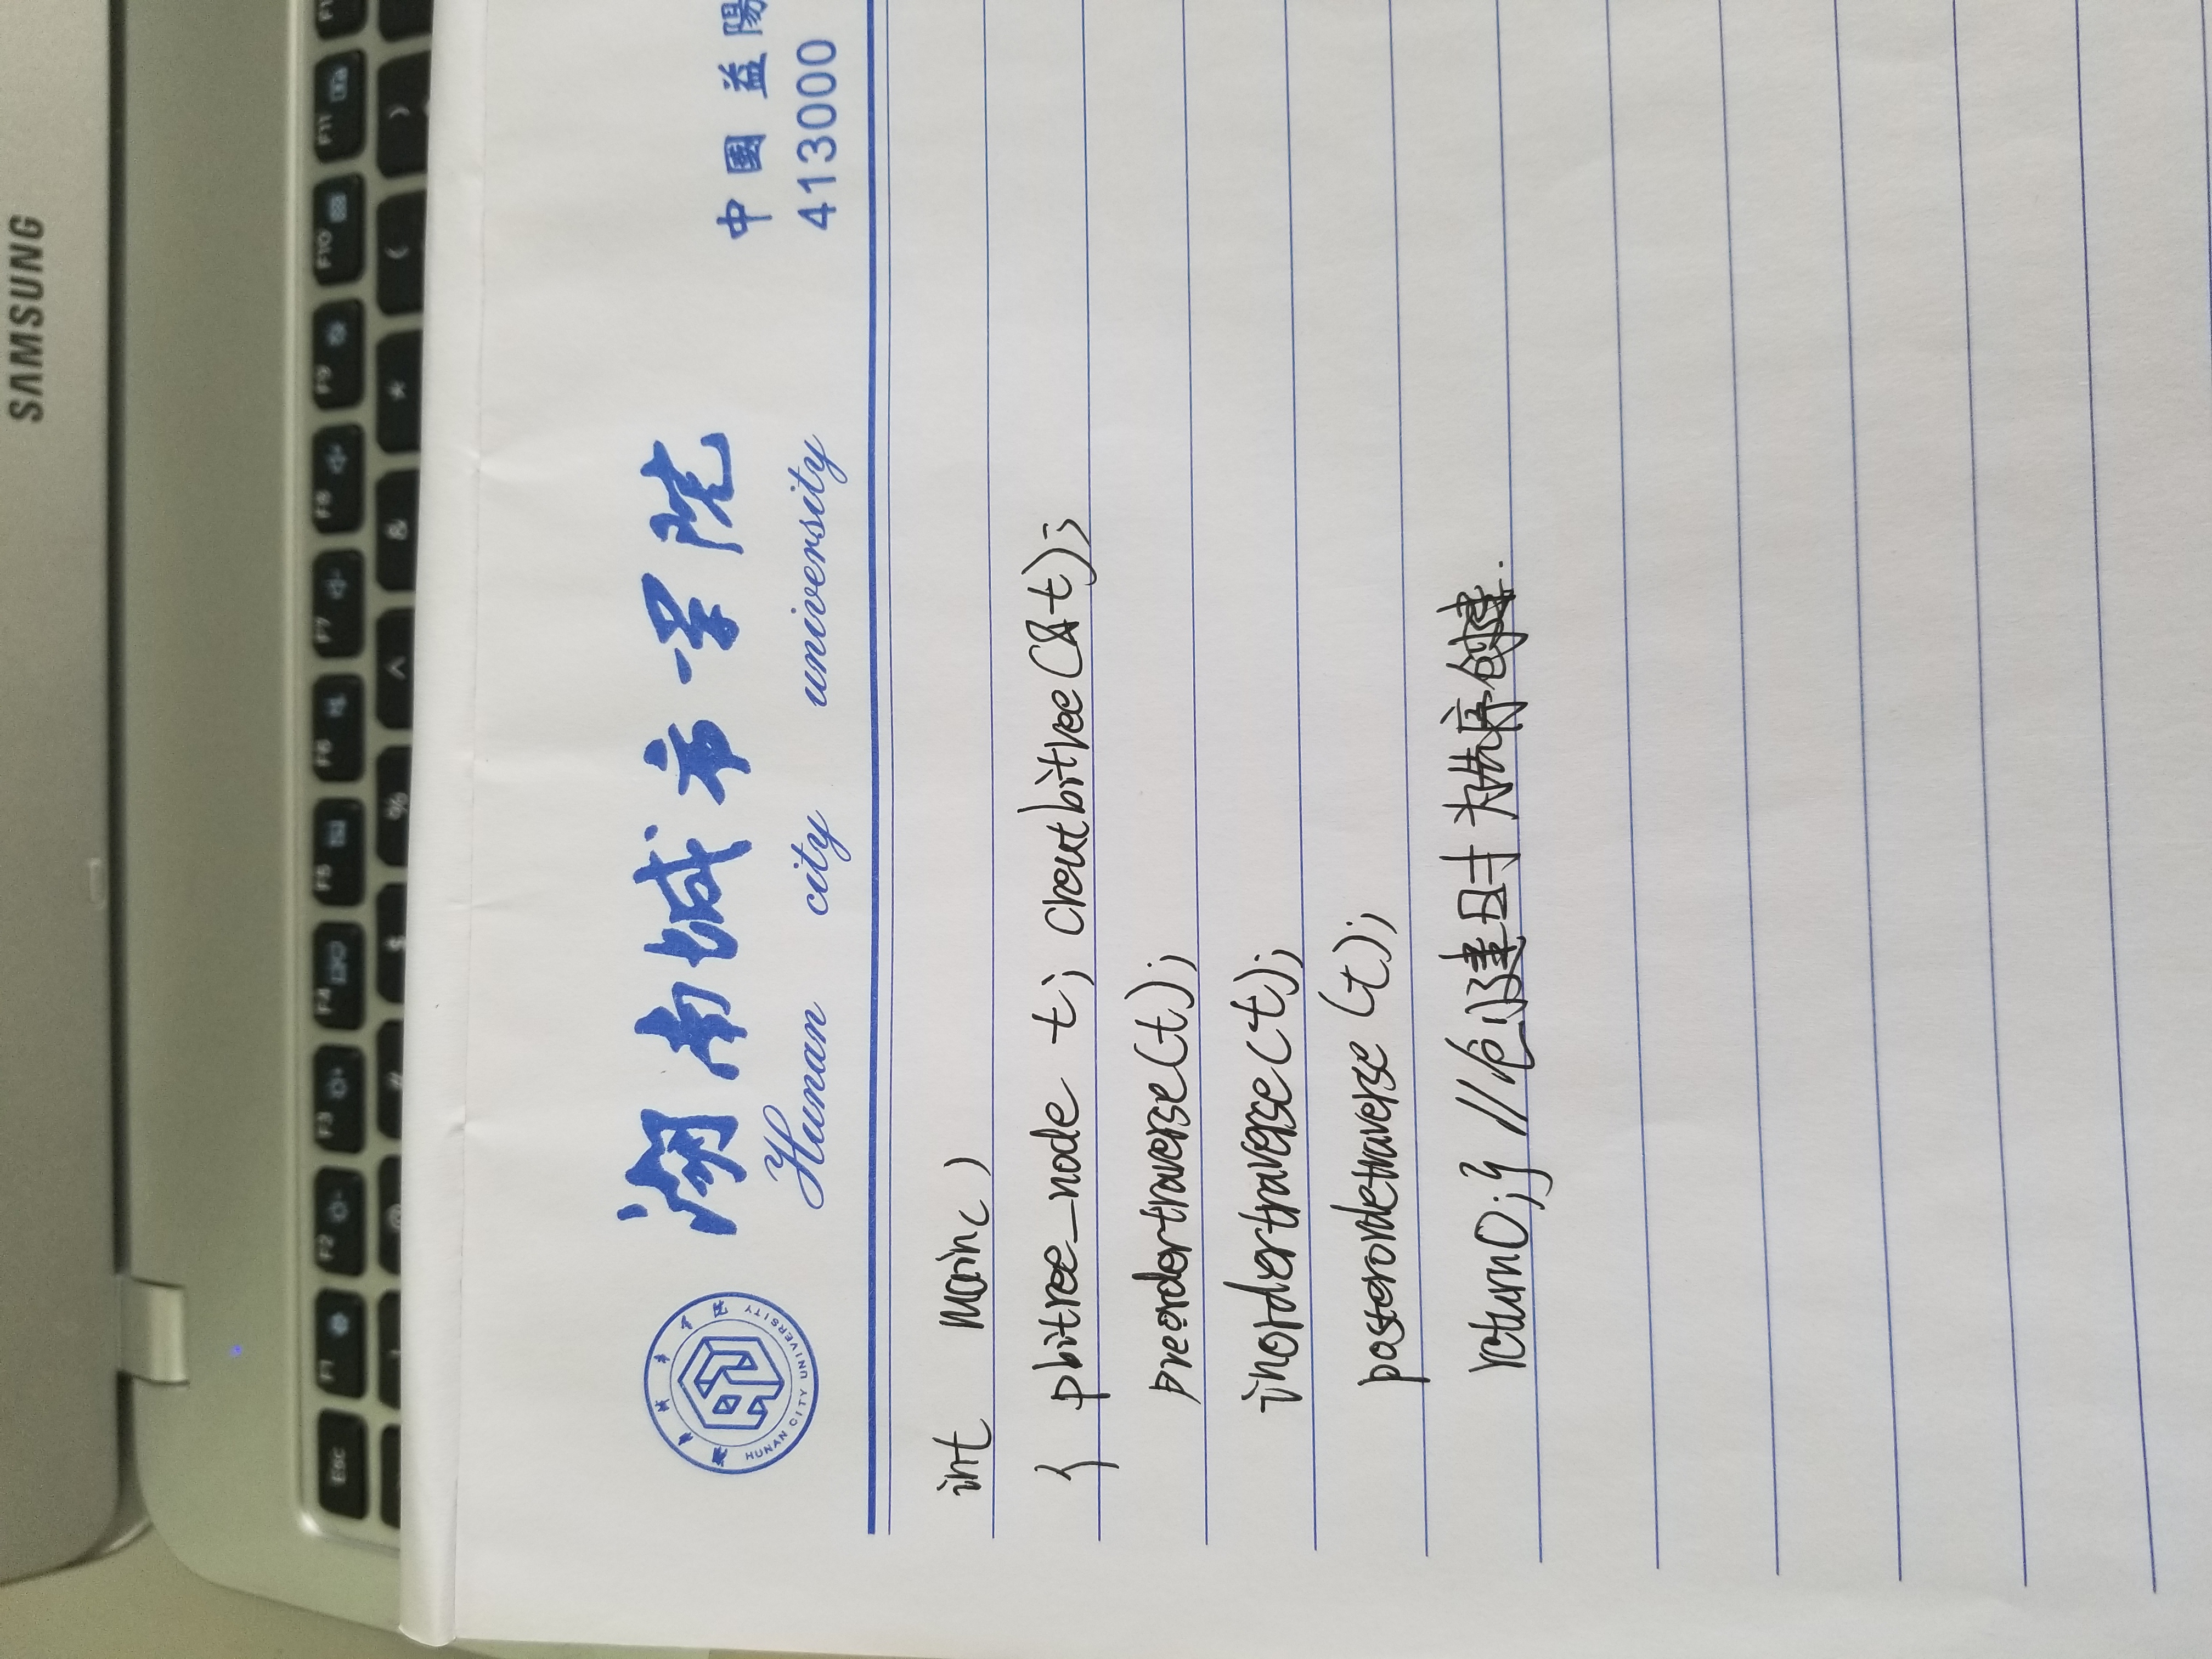 SAMSUNG
Esc F1 F2 F3 F4 F5 F6 F7 F8 F9 F10 F11 F1
! @ # $ % ^ & * ( )
湖南城市学院
HUNAN CITY UNIVERSITY
湖南城市学院
中國 益陽
Hunan city university
413000
int main()
{ pbitree_node t; creatbitree(&t);
preordertraverse(t);
inordertraverse(t);
posterordetraverse(t);
return0;} //创建时为先序创建.